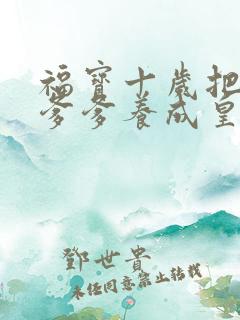 福寶十歲把
爹爹養成皇
鄧世貴
未经同意禁止转载